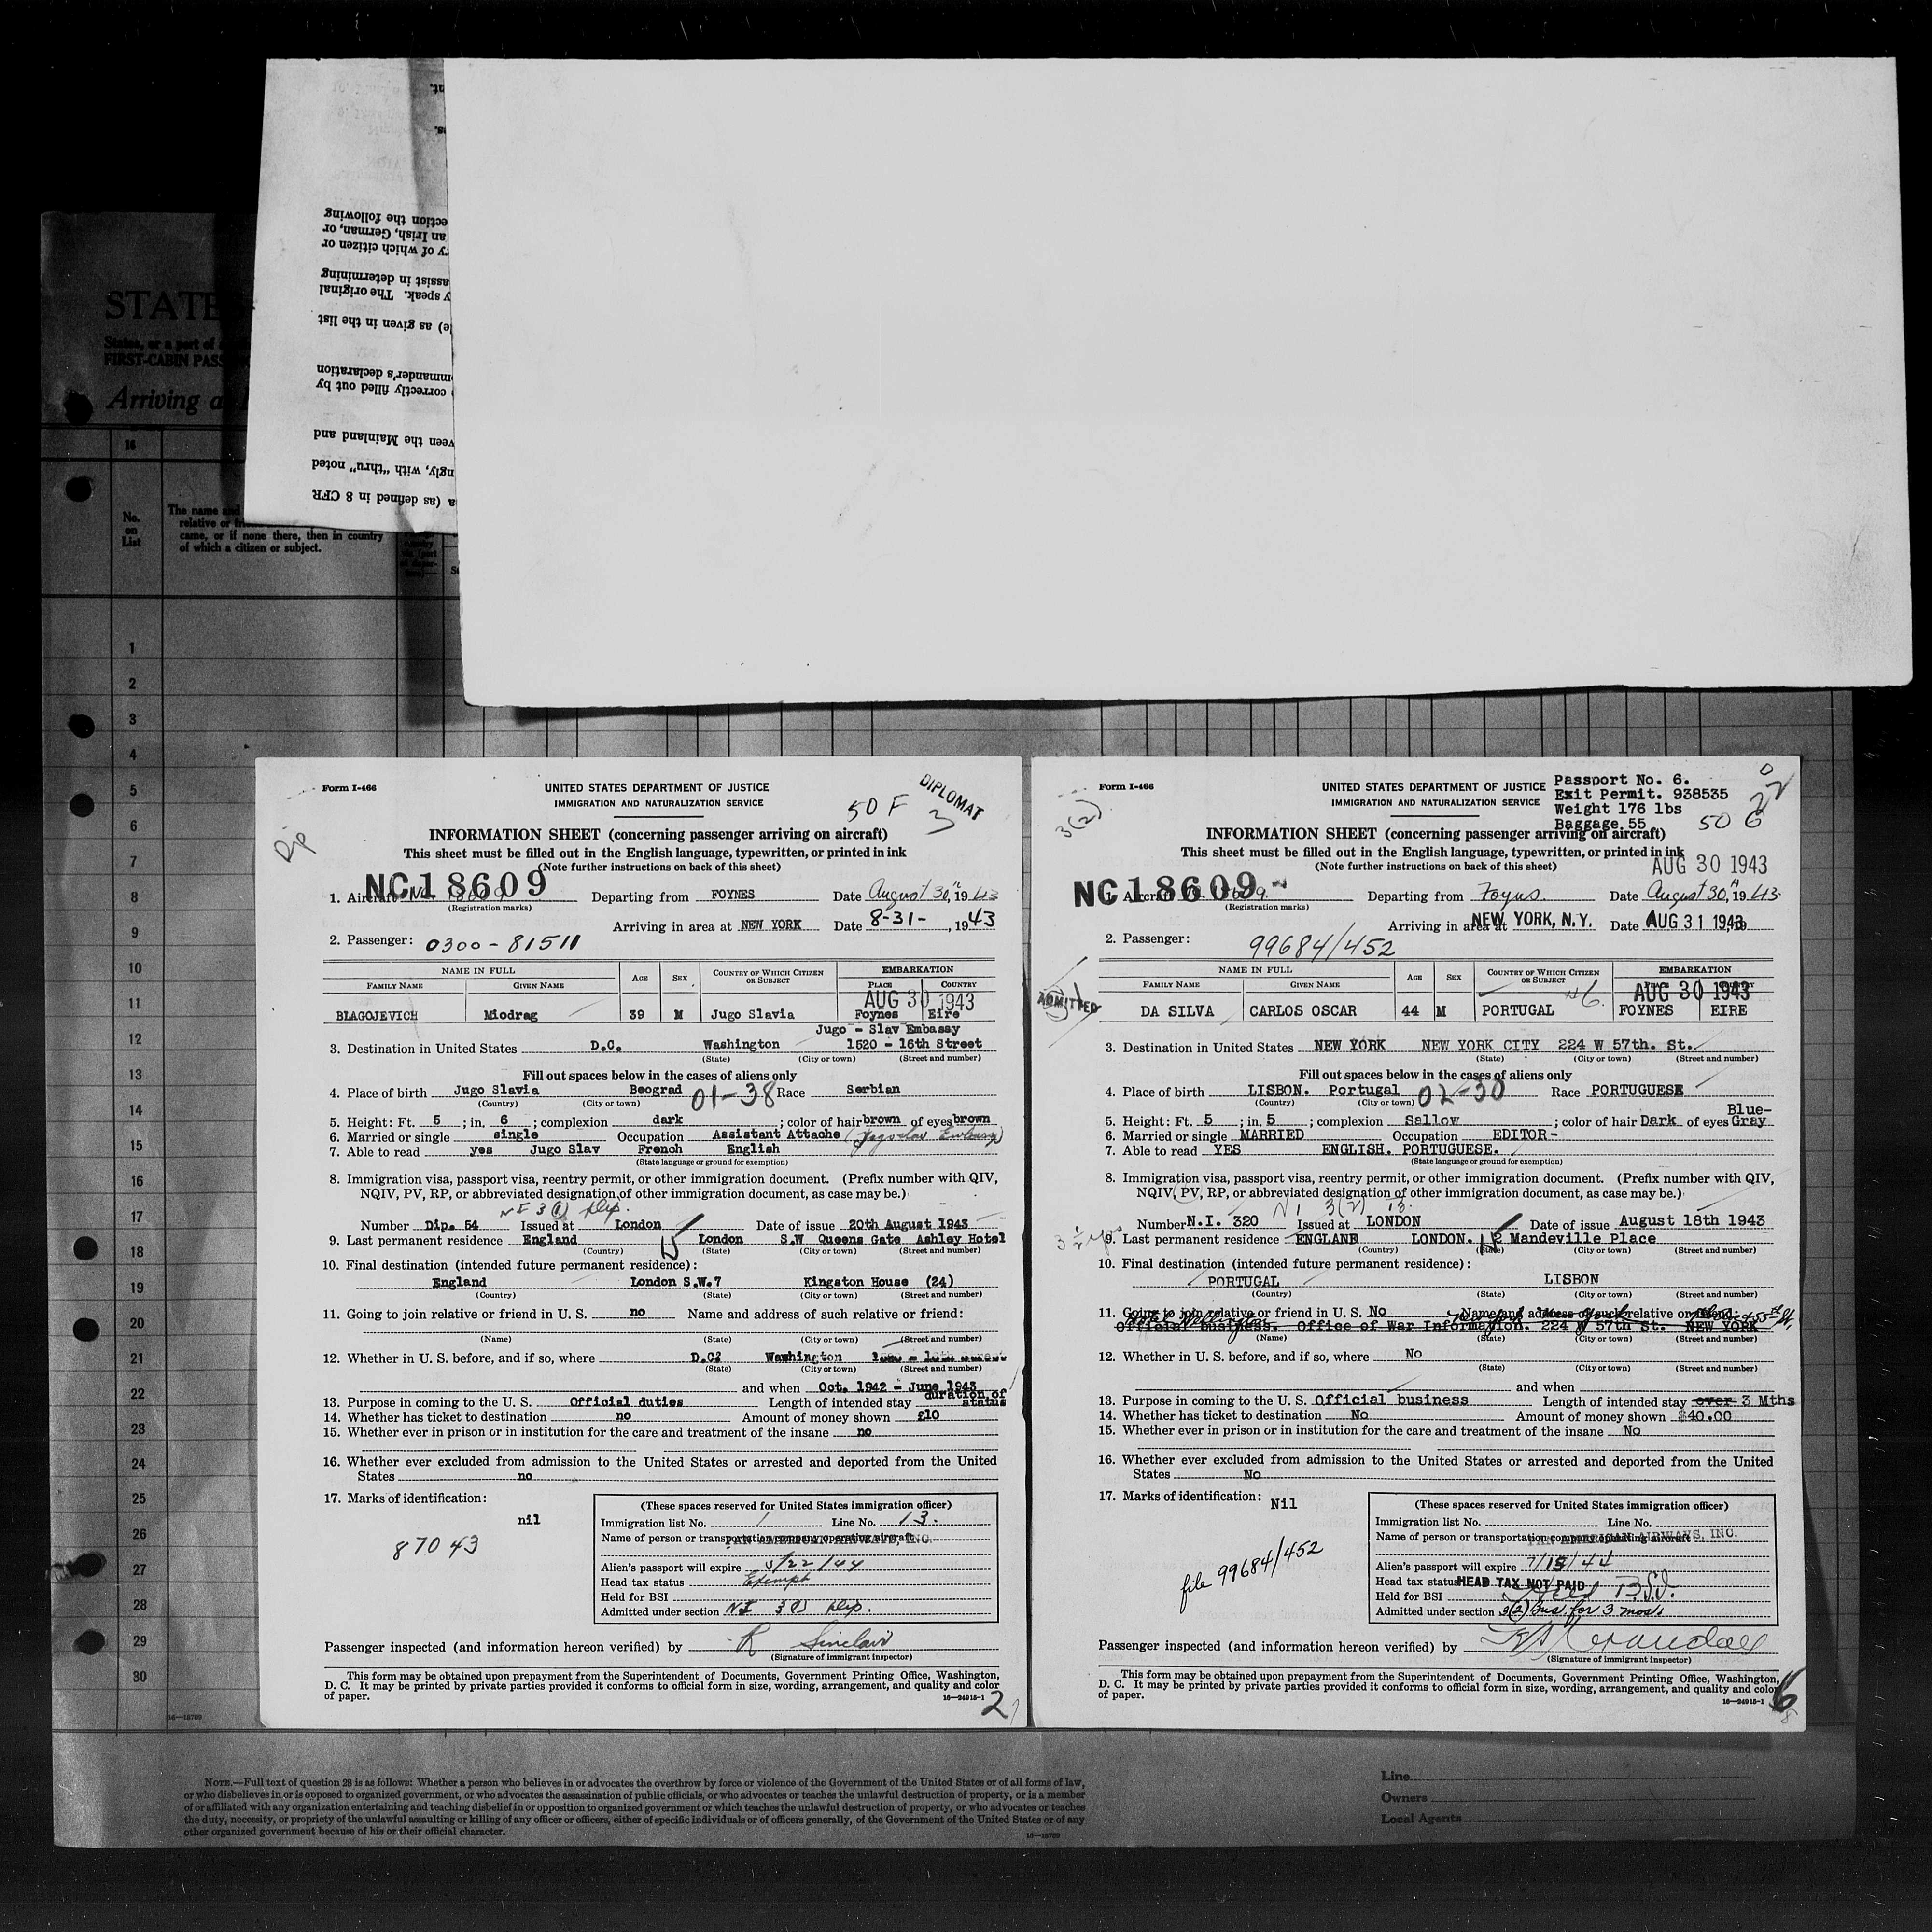 nt.
ection the following
an Irish, German, or
ry of which citizen or
assist in determining
y speak. The original
le) as given in the list
mmander's declaration
correctly filled out by
veen the Mainland and
ngly, with "thru" noted
a (as defined in 8 CFR
STATE
States, or a part of
FIRST-CABIN PASS
Arriving a
16
No.
on
List
The name and
relative or
came, or if none there, then in country
of which a citizen or subject.
1
2
3
4
5
6
7
8
9
10
11
12
13
14
15
16
17
18
19
20
21
22
23
24
25
26
27
28
29
30
16—18709
Form I-466
UNITED STATES DEPARTMENT OF JUSTICE
IMMIGRATION AND NATURALIZATION SERVICE
50 F
DIPLOMAT
3
Dip
INFORMATION SHEET (concerning passenger arriving on aircraft)
This sheet must be filled out in the English language, typewritten, or printed in ink
(Note further instructions on back of this sheet)
NC18609
1. Aircraft Departing from FOYNES Date August 30, 1943
(Registration marks)
Arriving in area at NEW YORK Date 8-31-, 1943
2. Passenger: 0300-81511
NAME IN FULL AGE SEX COUNTRY OF WHICH CITIZEN OR SUBJECT EMBARKATION
FAMILY NAME GIVEN NAME PLACE COUNTRY
AUG 30 1943
BLAGOJEVICH Miodrag 39 M Jugo Slavia Foynes Eire
Jugo - Slav Embassy
3. Destination in United States D.C. Washington 1520 - 16th Street
(State) (City or town) (Street and number)
Fill out spaces below in the cases of aliens only
4. Place of birth Jugo Slavia Beograd 01-38 Race Serbian
(Country) (City or town)
5. Height: Ft. 5 ; in. 6 ; complexion dark ; color of hair brown of eyes brown
6. Married or single single Occupation Assistant Attache (Jugoslav Embassy)
7. Able to read yes Jugo Slav French English
(State language or ground for exemption)
8. Immigration visa, passport visa, reentry permit, or other immigration document. (Prefix number with QIV,
NQIV, PV, RP, or abbreviated designation of other immigration document, as case may be.)
NI 3(1) Dip.
Number Dip. 54 Issued at London Date of issue 20th August 1943
9. Last permanent residence England London S.W Queens Gate Ashley Hotel
(Country) (State) (City or town) (Street and number)
10. Final destination (intended future permanent residence):
England London S.W.7 Kingston House (24)
(Country) (State) (City or town) (Street and number)
11. Going to join relative or friend in U. S. no Name and address of such relative or friend:
(Name) (State) (City or town) (Street and number)
12. Whether in U. S. before, and if so, where D.C? Washington 1520 - 16th Street
(State) (City or town) (Street and number)
and when Oct. 1942 - June 1943
duration of
13. Purpose in coming to the U. S. Official duties Length of intended stay status
14. Whether has ticket to destination no Amount of money shown £10
15. Whether ever in prison or in institution for the care and treatment of the insane no
16. Whether ever excluded from admission to the United States or arrested and deported from the United
States no
17. Marks of identification:
nil
87043
(These spaces reserved for United States immigration officer)
Immigration list No. 1 Line No. 13.
Name of person or transportation company operating aircraft
PAN AMERICAN AIRWAYS, INC.
Alien's passport will expire 5/22/44
Head tax status Exempt
Held for BSI
Admitted under section NI 3(1) Dip.
Passenger inspected (and information hereon verified) by R Sinclair
(Signature of immigrant inspector)
This form may be obtained upon prepayment from the Superintendent of Documents, Government Printing Office, Washington,
D. C. It may be printed by private parties provided it conforms to official form in size, wording, arrangement, and quality and color
of paper.
16—24915-1
2
Form I-466
UNITED STATES DEPARTMENT OF JUSTICE
IMMIGRATION AND NATURALIZATION SERVICE
Passport No. 6.
Exit Permit. 938535
Weight 176 lbs
Baggage 55
50 G
22
3(2)
INFORMATION SHEET (concerning passenger arriving on aircraft)
This sheet must be filled out in the English language, typewritten, or printed in ink
(Note further instructions on back of this sheet)
AUG 30 1943
NC18609
1. Aircraft Departing from Foynes. Date August 30, 1943
(Registration marks)
Arriving in area at NEW YORK, N.Y. Date AUG 31 1943
2. Passenger: 99684/452
NAME IN FULL AGE SEX COUNTRY OF WHICH CITIZEN OR SUBJECT EMBARKATION
FAMILY NAME GIVEN NAME PLACE COUNTRY
ADMITTED
#6. AUG 30 1943
DA SILVA CARLOS OSCAR 44 M PORTUGAL FOYNES EIRE
3. Destination in United States NEW YORK NEW YORK CITY 224 W 57th. St.
(State) (City or town) (Street and number)
Fill out spaces below in the cases of aliens only
4. Place of birth LISBON. Portugal 02-30 Race PORTUGUESE
(Country) (City or town)
Blue-
5. Height: Ft. 5 ; in. 5 ; complexion Sallow ; color of hair Dark of eyes Gray
6. Married or single MARRIED Occupation EDITOR-
7. Able to read YES ENGLISH. PORTUGUESE.
(State language or ground for exemption)
8. Immigration visa, passport visa, reentry permit, or other immigration document. (Prefix number with QIV,
NQIV, PV, RP, or abbreviated designation of other immigration document, as case may be.)
NI 3(2) B.
Number N.I. 320 Issued at LONDON Date of issue August 18th 1943
9. Last permanent residence ENGLAND LONDON. 2 Mandeville Place
(Country) (State) (City or town) (Street and number)
10. Final destination (intended future permanent residence):
PORTUGAL LISBON
(Country) (State) (City or town) (Street and number)
11. Going to join relative or friend in U. S. No Name and address of such relative or friend:
Official business. Office of War Information. 224 W 57th St. NEW YORK
(Name) (State) (City or town) (Street and number)
12. Whether in U. S. before, and if so, where No
(State) (City or town) (Street and number)
and when
13. Purpose in coming to the U. S. Official business Length of intended stay over 3 Mths
14. Whether has ticket to destination No Amount of money shown $40.00
15. Whether ever in prison or in institution for the care and treatment of the insane No
16. Whether ever excluded from admission to the United States or arrested and deported from the United
States No
17. Marks of identification: Nil
file 99684/452
(These spaces reserved for United States immigration officer)
Immigration list No. Line No.
Name of person or transportation company operating aircraft
PAN AMERICAN AIRWAYS, INC.
Alien's passport will expire 7/15/44
Head tax status HEAD TAX NOT PAID
Held for BSI Held B.S.I.
Admitted under section 3(2) Bus. for 3 mos.
Passenger inspected (and information hereon verified) by
(Signature of immigrant inspector)
This form may be obtained upon prepayment from the Superintendent of Documents, Government Printing Office, Washington,
D. C. It may be printed by private parties provided it conforms to official form in size, wording, arrangement, and quality and color
of paper.
16—24915-1
6
8
NOTE.—Full text of question 28 is as follows: Whether a person who believes in or advocates the overthrow by force or violence of the Government of the United States or of all forms of law,
or who disbelieves in or is opposed to organized government, or who advocates the assassination of public officials, or who advocates or teaches the unlawful destruction of property, or is a member
of or affiliated with any organization entertaining and teaching disbelief in or opposition to organized government or which teaches the unlawful destruction of property, or who advocates or teaches
the duty, necessity, or propriety of the unlawful assaulting or killing of any officer or officers, either of specific individuals or of officers generally, of the Government of the United States or of any
other organized government because of his or their official character.
16—18709
Line
Owners
Local Agents